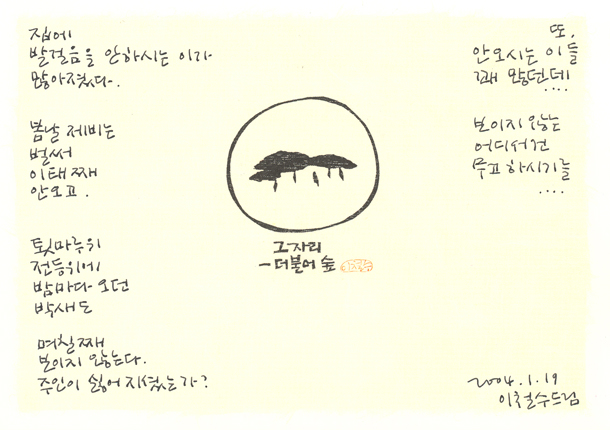 집에
발걸음을 안하시는 이가
많아졌다.
봄날 제비는
벌써
이태째
안오고.
툇마루위
전등위에
밤마다 오던
박새도
며칠째
보이지 않는다.
주인이 싫어지셨는가?
그 자리
- 더불어 숲
또,
안오시는 이들
꽤 많던데
....
보이지 않는
어디서건
무고하시기를
....
2004.1.19
이철수드림